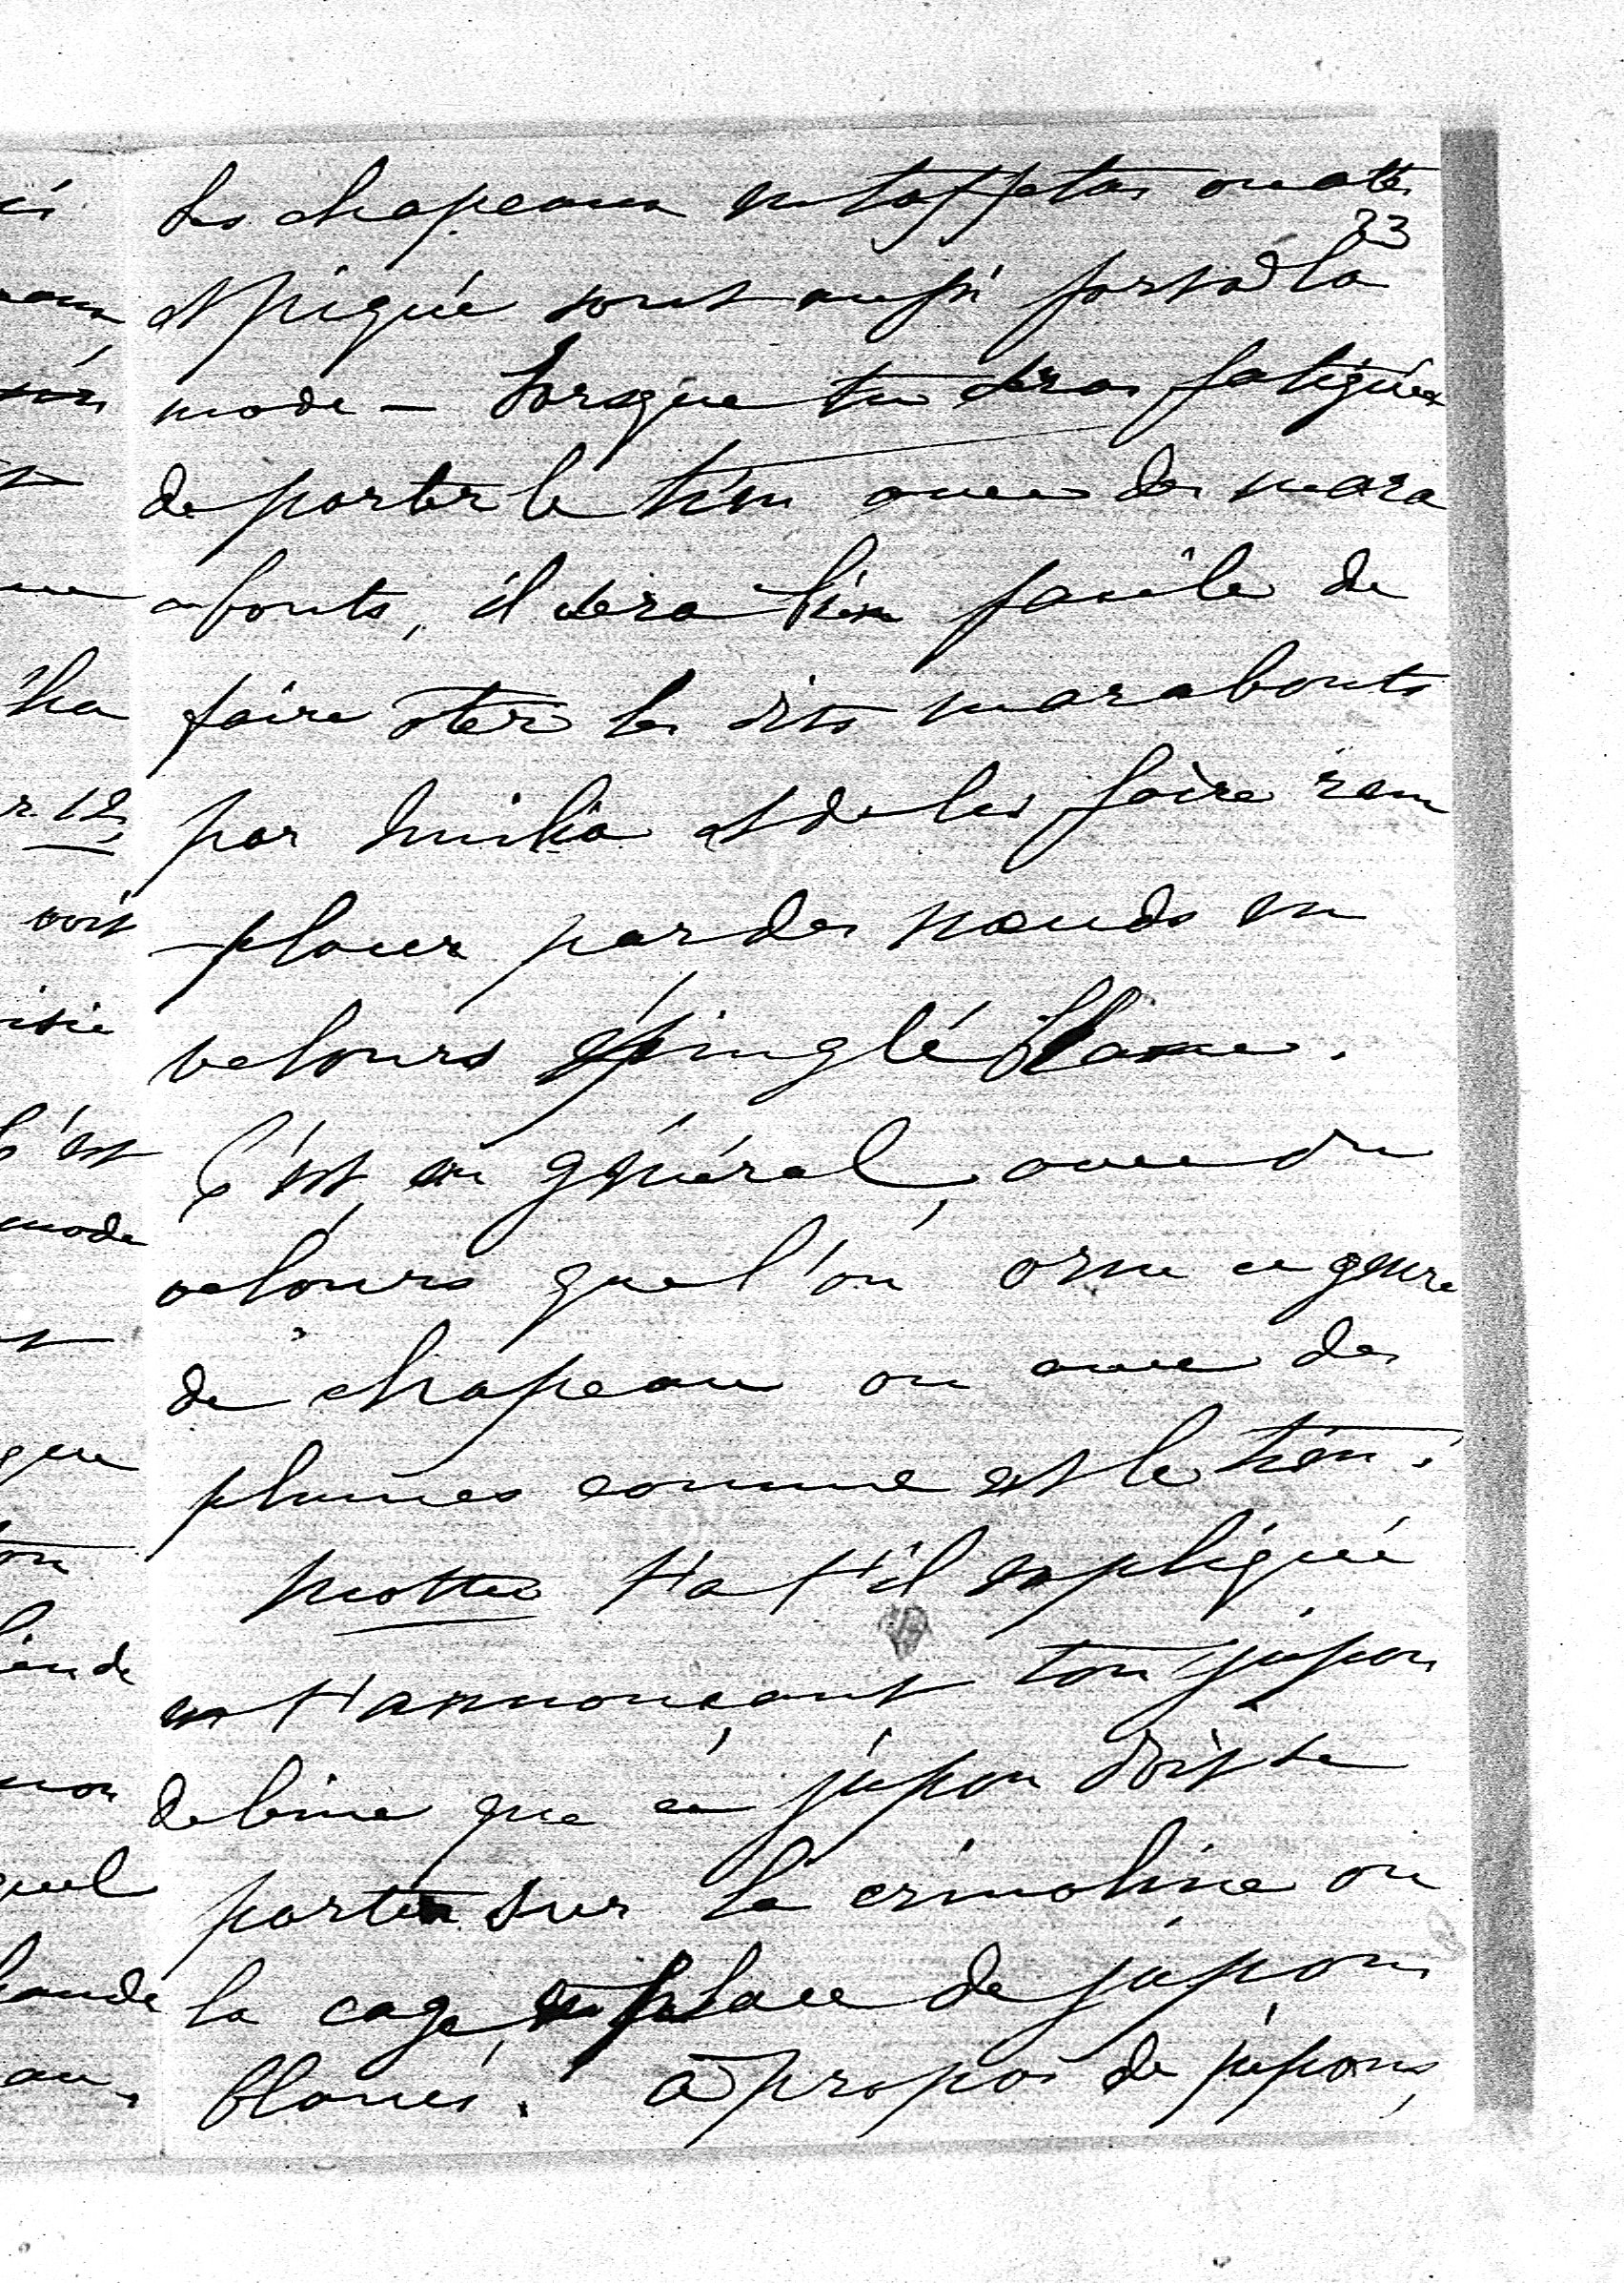 Les chapeaux en taffetas ouatés
23
et piqué sont aussi fort à la
mode – Lorsque tu seras fatiguée
de porter le tien avec des mara
bouts, il sera bien facile de
faire ôter les dits marabouts
par et de les faire rem
placer par des nœuds en
velours épinglé blanc.
C'est, en général, avec du
velours que l'on orne ce genre
de chapeau ou avec des
plumes comme est le tien.
t'a t'il expliqué
en t'annonçant ton jupon
de laine que ce jupon doit se
porter sur la crinoline ou
la cage, en place de jupons
blancs. à propos de jupons,